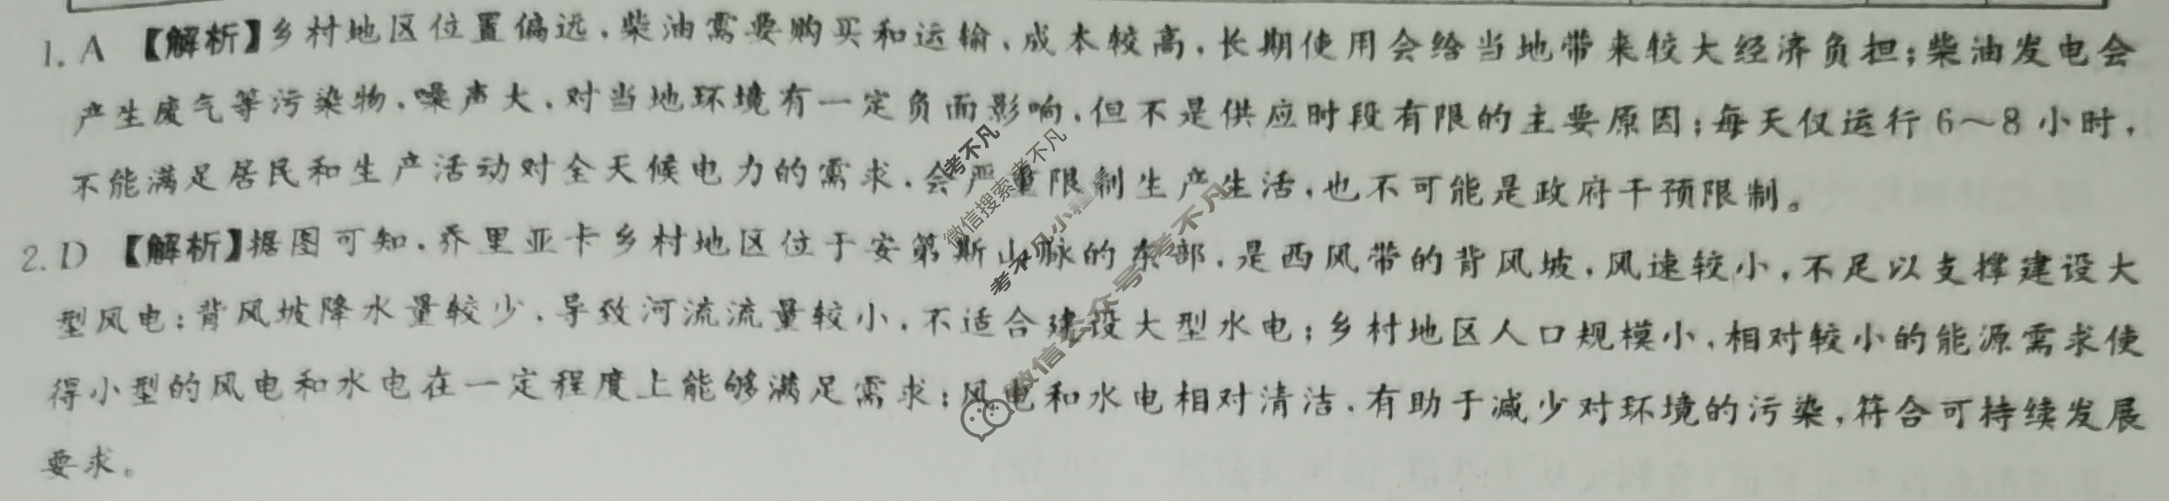 1. A 【解析】乡村地区位置偏远,柴油需要购买和运输,成本较高,长期使用会给当地带来较大经济负担;柴油发电会
产生废气等污染物,噪声大,对当地环境有一定负面影响,但不是供应时段有限的主要原因;每天仅运行6～8小时,
不能满足居民和生产活动对全天候电力的需求,会严重限制生产生活,也不可能是政府干预限制。
2. D 【解析】据图可知,乔里亚卡乡村地区位于安第斯山脉的东部,是西风带的背风坡,风速较小,不足以支撑建设大
型风电;背风坡降水量较少,导致河流流量较小,不适合建设大型水电;乡村地区人口规模小,相对较小的能源需求使
得小型的风电和水电在一定程度上能够满足需求;风电和水电相对清洁,有助于减少对环境的污染,符合可持续发展
要求。
考不凡
微信搜索考不凡
考不凡小程
微信公众号考不凡